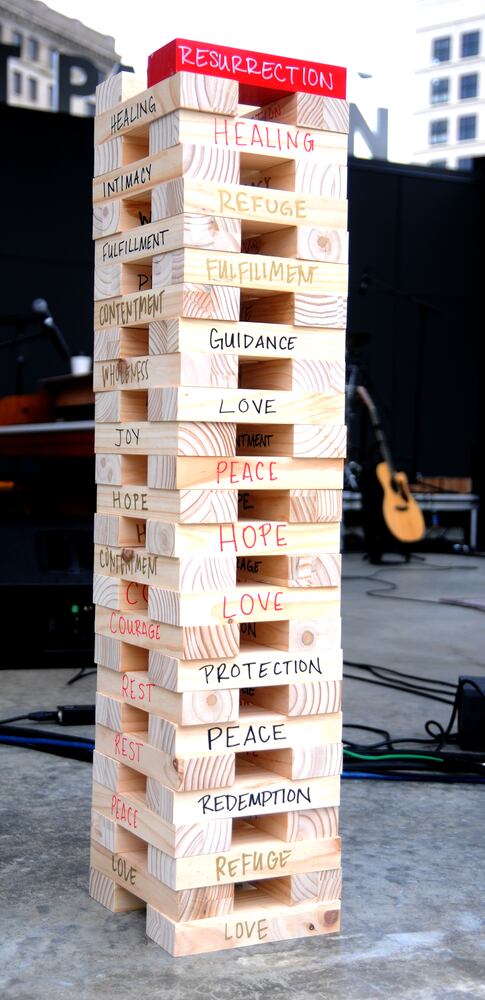 RESURRECTION
HEALING
HEALING
INTIMACY
REFUGE
FULFILLMENT
FULFILLMENT
CONTENTMENT
GUIDANCE
WHOLENESS
LOVE
JOY
PEACE
HOPE
HOPE
CONTENTMENT
LOVE
COURAGE
PROTECTION
REST
PEACE
REST
REDEMPTION
PEACE
REFUGE
LOVE
LOVE